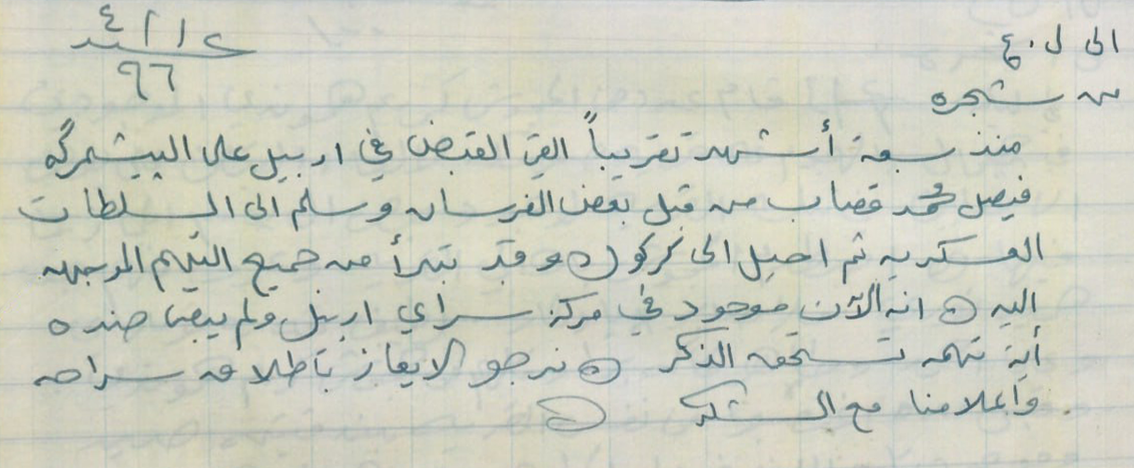 الى ل.ع
من شجره
منذ سبعة أشهر تقريباً القي القبض في اربيل على البيشمرگه
فيصل محمد قصاب من قبل بعض الفرسان وسلم الى السلطات
العسكرية ثم احيل الى كركوك وقد تبرأ من جميع التهم الموجهه
اليه انه الآن موجود في مركز سراي اربيل ولم يبق ضده
أية تهمه تستحق الذكر نرجو الايعاز بأطلاق سراحه
واعلامنا مع الشكر